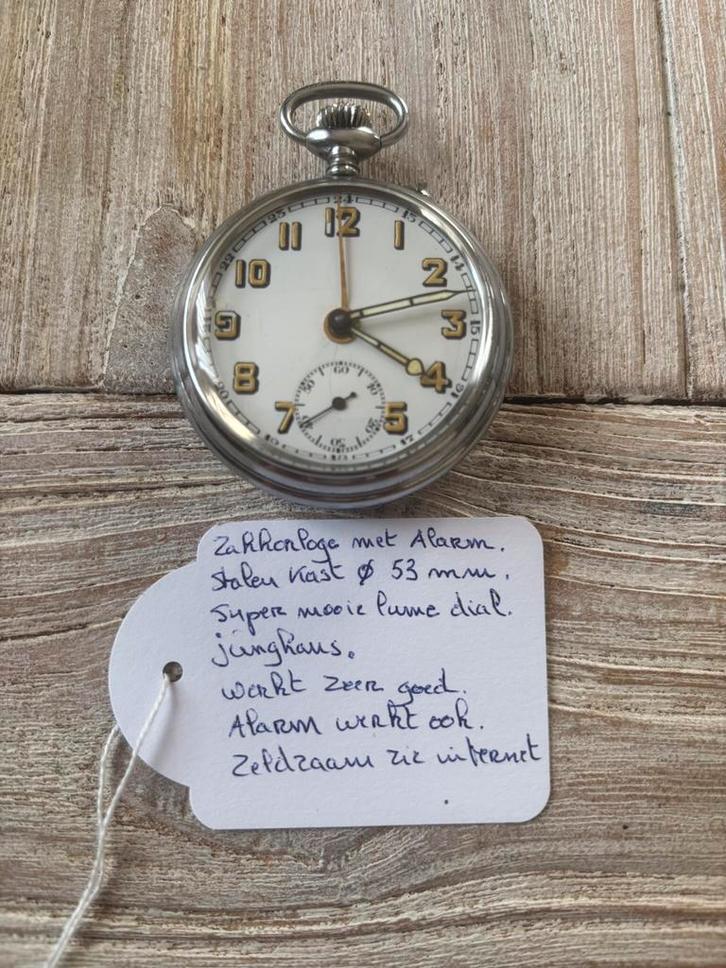 24
23
13
12
11
1
22
14
10
2
9
3
15
8
4
20
16
60
10
7
5
50
17
18
Zakhorloge met Alarm.
stalen kast ø 53 mm.
super mooie lume dial.
junghans.
werkt zeer goed.
Alarm werkt ook.
Zeldzaam zie internet